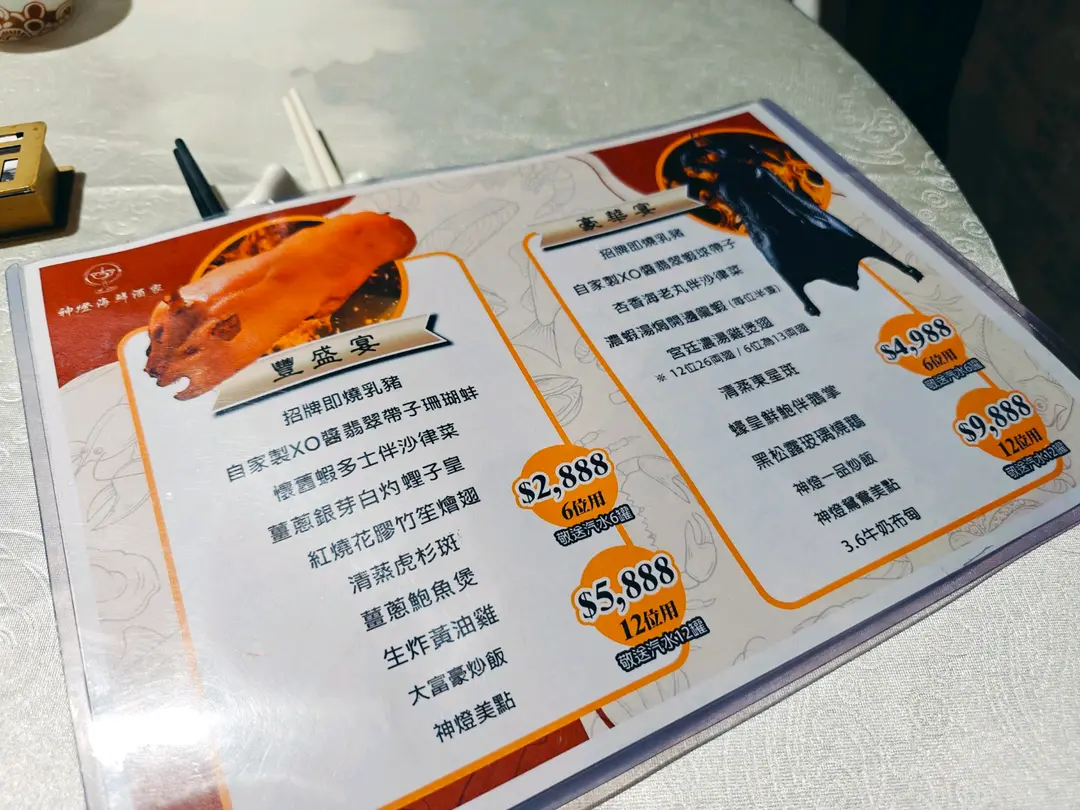 神燈海鮮酒家
豐盛宴
招牌即燒乳豬
自家製XO醬翡翠帶子珊瑚蚌
懷舊蝦多士伴沙律菜
薑蔥銀芽白灼螺子皇
紅燒花膠竹笙燴翅
清蒸虎杉斑
薑蔥鮑魚煲
生炸黃油雞
大富豪炒飯
神燈美點
$2,888
6位用
敬送汽水6罐
$5,888
12位用
敬送汽水12罐
豪華宴
招牌即燒乳豬
自家製XO醬翡翠蝦球帶子
杏香海老丸伴沙律菜
濃蝦湯焗開邊龍蝦 (每位半隻)
宮廷濃湯雞煲翅
※ 12位26両翅 / 6位為13両翅
清蒸東星斑
蠔皇鮮鮑伴鵝掌
黑松露玻璃燒鵝
神燈一品炒飯
神燈鴛鴦美點
3.6牛奶布甸
$4,988
6位用
敬送汽水6罐
$9,888
12位用
敬送汽水12罐